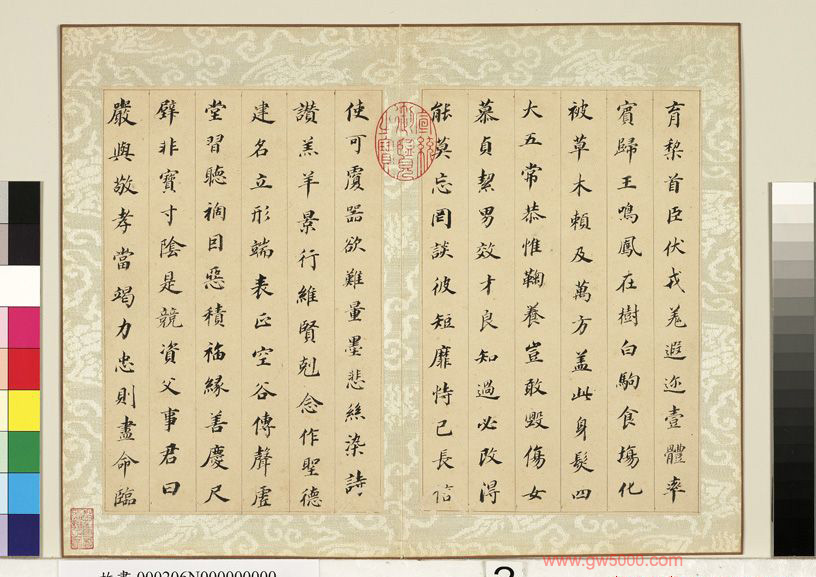 育黎首臣伏戎羌遐迩壹體率
賓歸王鳴鳳在樹白駒食場化
被草木賴及萬方盖此身髮四
大五常恭惟鞠養豈敢毀傷女
慕貞絜男效才良知過必改得
能莫忘罔談彼短靡恃己長信
使可覆器欲難量墨悲絲染詩
讚羔羊景行維賢剋念作聖德
建名立形端表正空谷傳聲虛
堂習聽禍因惡積福緣善慶尺
璧非寶寸陰是競資父事君曰
嚴與敬孝當竭力忠則盡命臨
www.gw5000.com